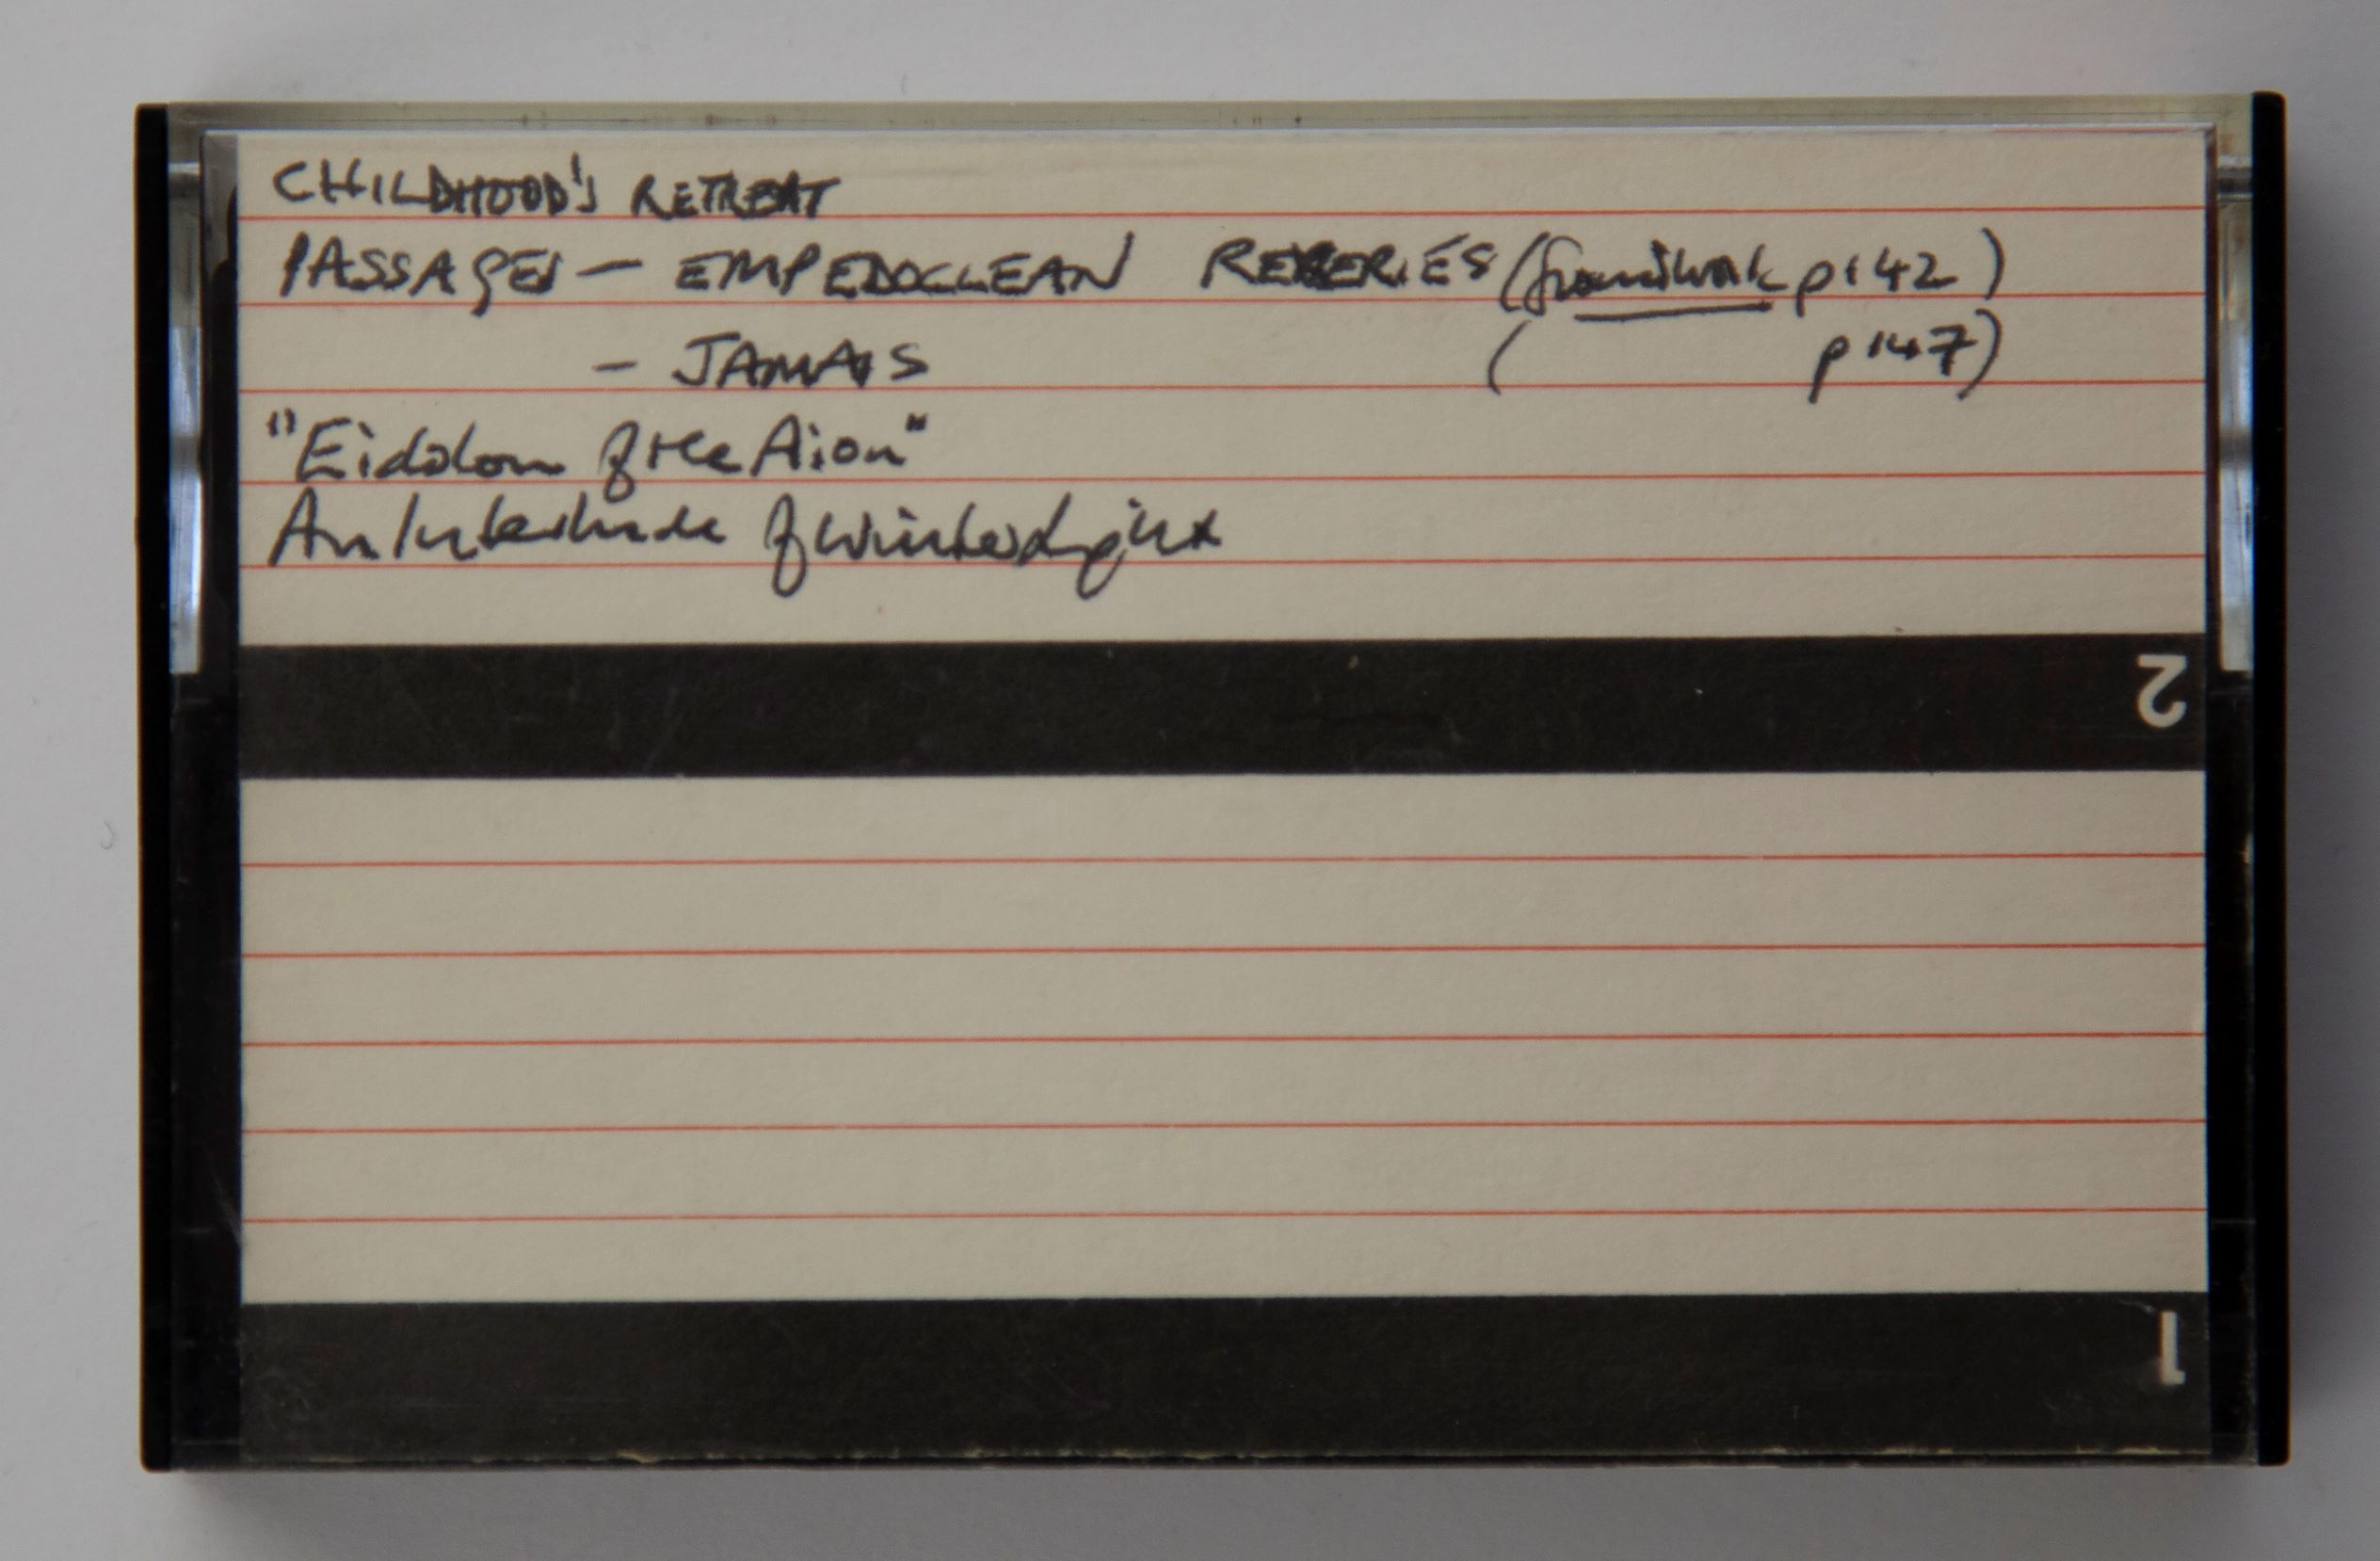 CHILDHOOD'S RETREAT
PASSAGES — EMPEDOCLEAN REVERIES (Groundwork p142)
- JAMAIS ( p147)
"Eidolon of the Aion"
An Interlude of Winter Light
2
1